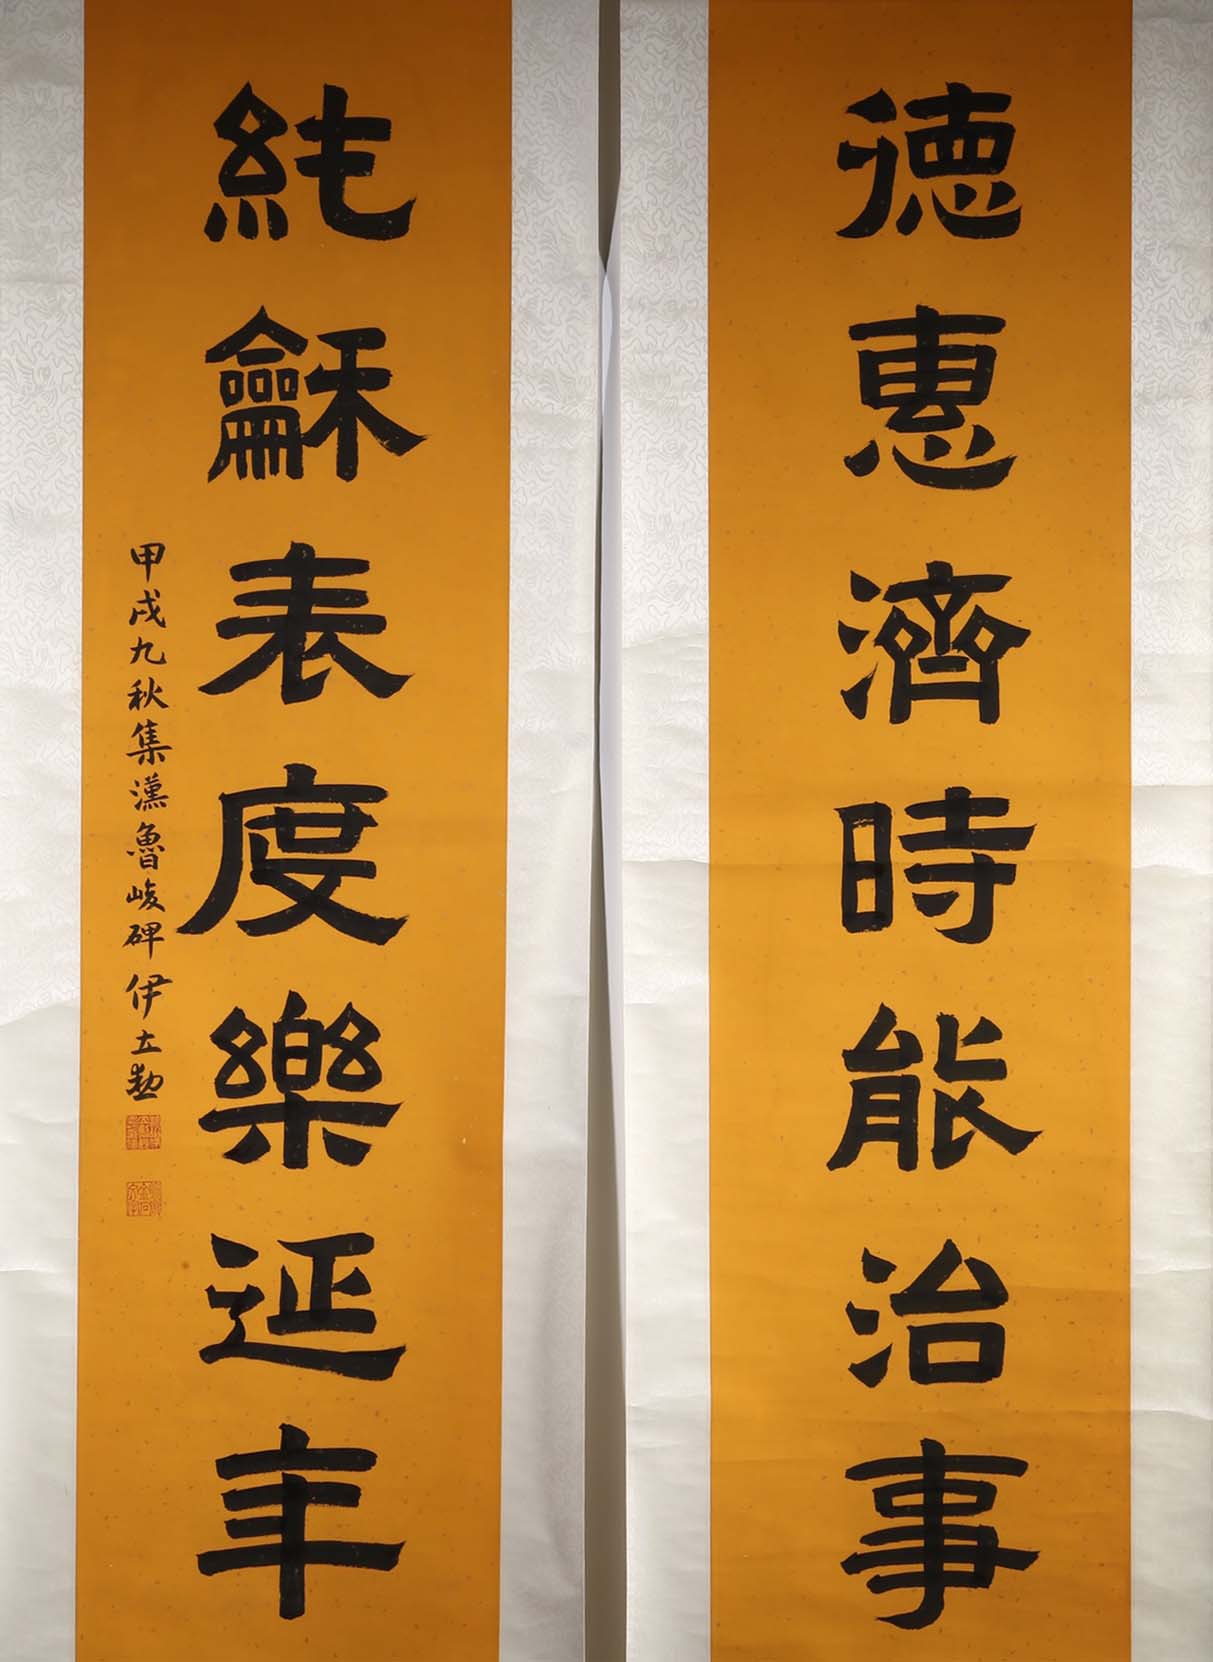 德惠濟時能治事
純龢表度樂延年
甲戌九秋集漢魯峻碑伊立勳